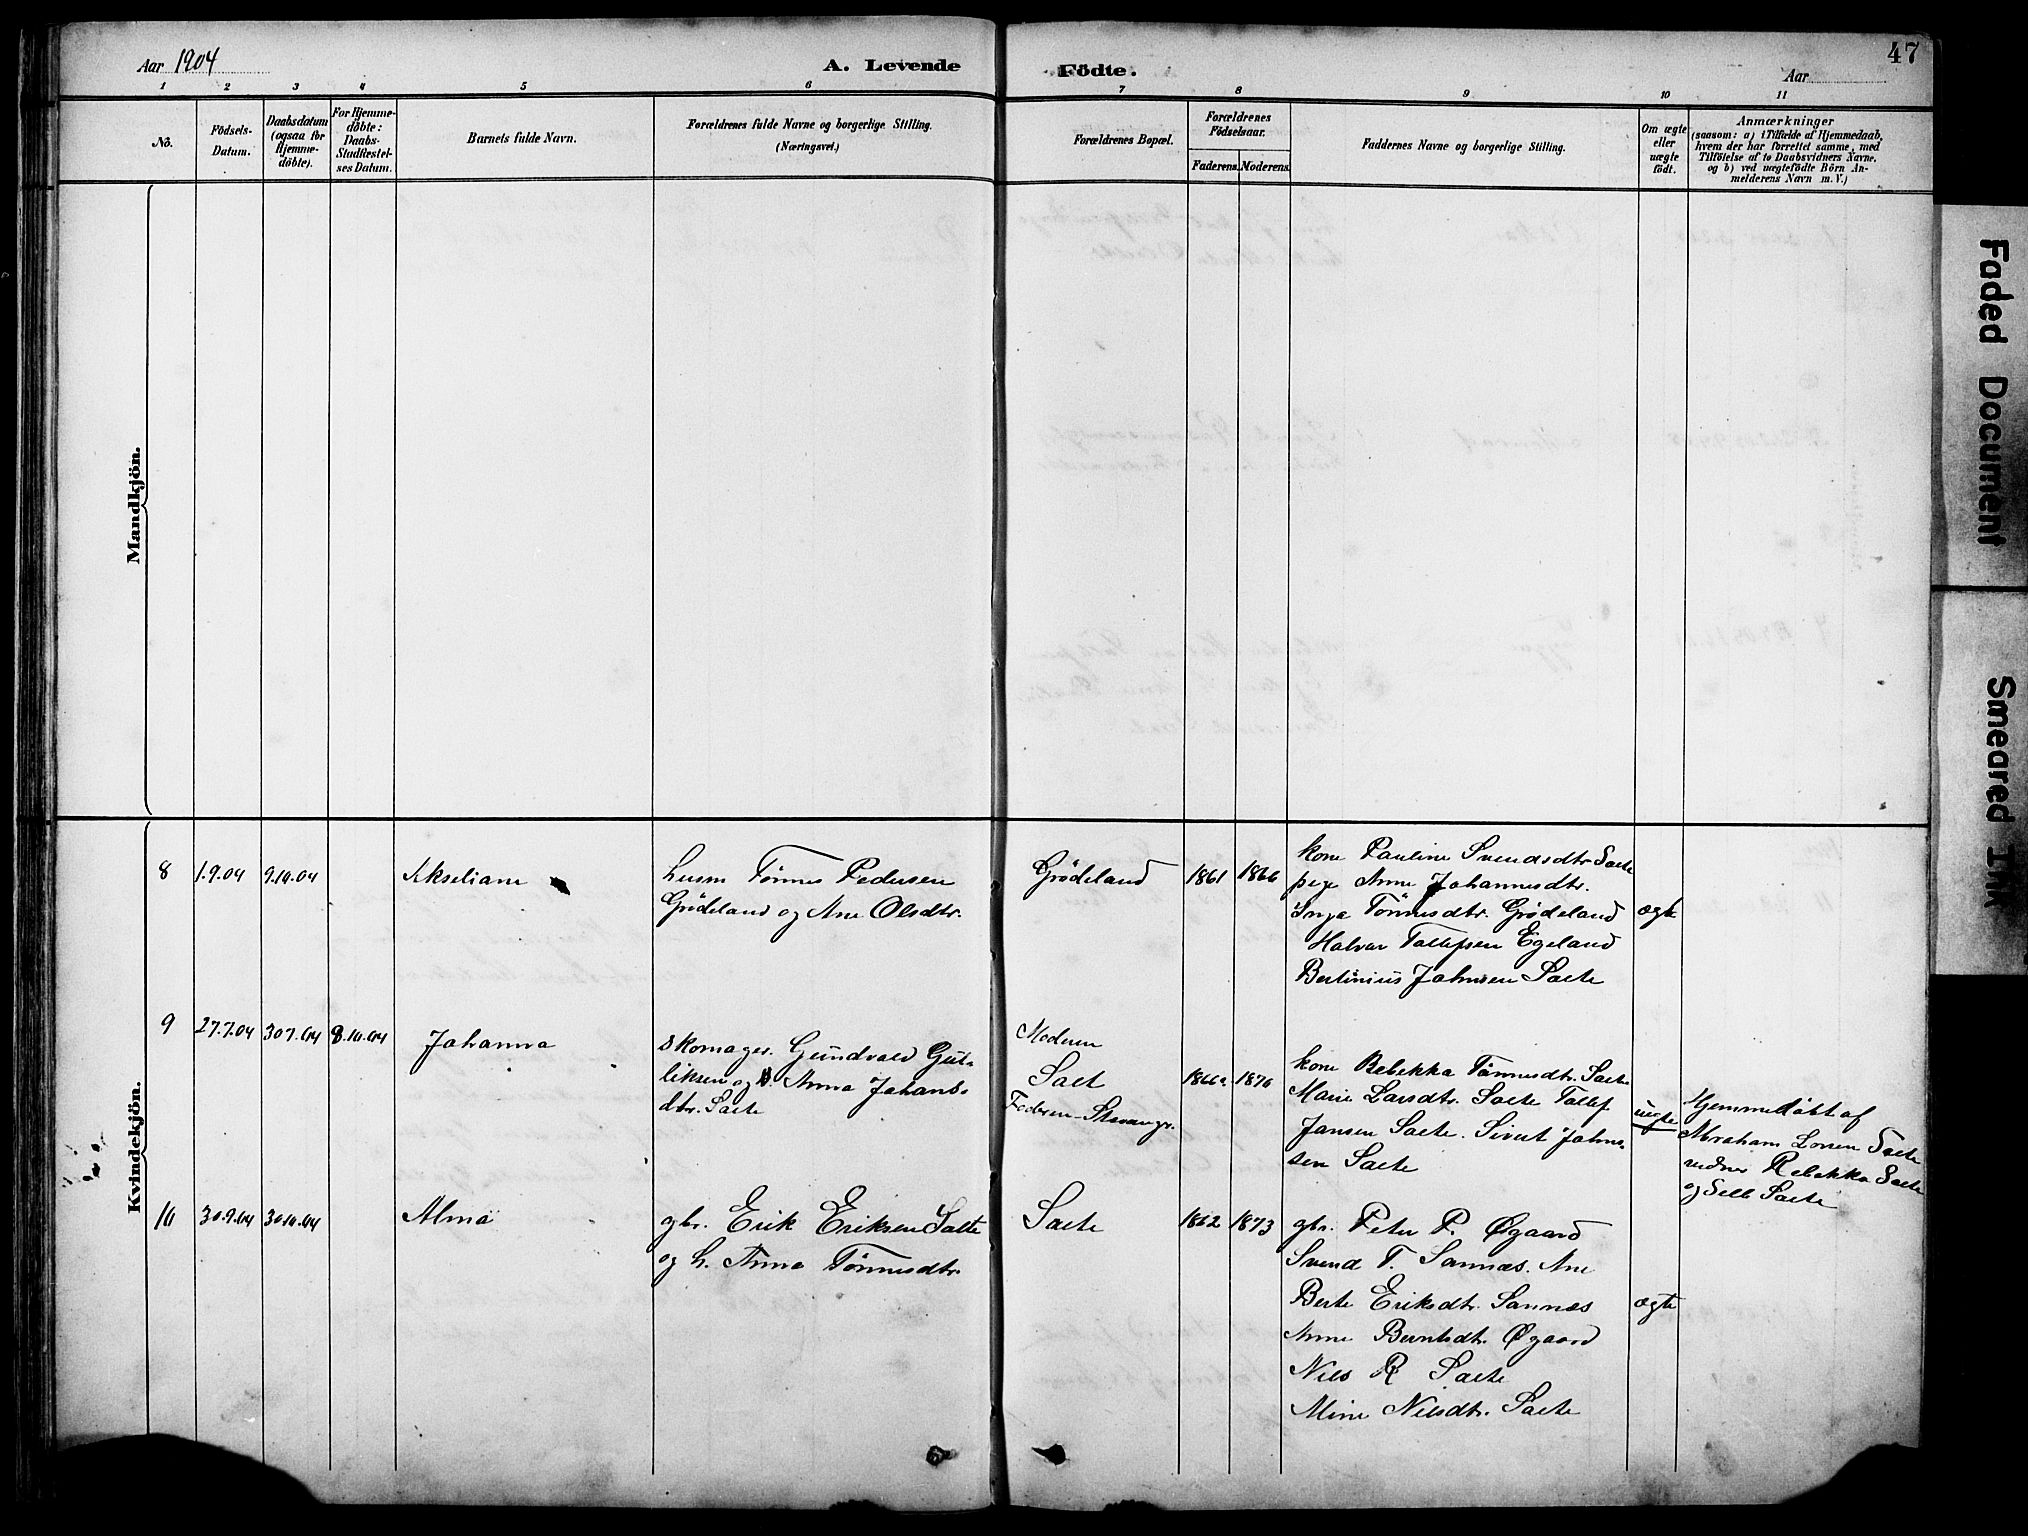 Aar 1904
A. Levende
Födte.
Aar
47
1 2 3 4 5 6 7 8 9 10 11
No.
Födsels-
Datum.
Daabsdatum
(ogsaa for
Hjemme-
döbte).
For Hjemme-
döbte:
Daabs-
Stadfæstel-
ses Datum.
Barnets fulde Navn.
Forældrenes fulde Navne og borgerlige Stilling.
(Næringsvei.)
Forældrenes Bopæl.
Forældrenes
Födselsaar.
Faderens. Moderens.
Faddernes Navne og borgerlige Stilling.
Om ægte
eller
uægte
födt.
Anmærkninger
(saasom: a) i Tilfælde af Hjemmedaab,
hvem der har forrettet samme, med
Tilföielse af to Daabsvidners Navne,
og b) ved uægtefödte Börn An-
melderens Navn m. V.)
Mandkjön.
Kvindekjön.
8 1.9.04 9.10.04 Akseliane
husm Tönnes Pedersen
Grödeland og Ane Olsdtr.
Grödeland 1861 1866
kone Pauline Svendsdtr Salte
pige Anne Johannesdtr.
Inga Tönnesdtr. Grødeland
Halvar Tollefsen Egeland
Bertinius Johnsen Salte
ægte
9 27.7.04 30.7.04 8.10.04 Johanna
Skomager. Gundvald Gut-
liksen og Anna Johans-
dtr. Salte
Moderen
Salt
Faderen-Stavangr.
1866 1870
kone Rebekka Tönnesdtr. Salte
Marie Larsdtr. Salte Tollef
Jansen Salte. Sivert Johns-
sen Salte
uegte
Hjemmedöbt af
Abraham Larsen Salte
vidner Rebekka Salte
og Selb Salte
10 30.9.04 30.10.04 Alma
gbr. Erik Eriksen Salte
og h. Anna Tönnesdtr.
Salte 1862 1873
gbr. Peter P. Øgaard
Svend T. Sannæs. Ane
Berte Eriksdtr. Sannæs
Anne Berntsdtr. Øgaard
Nils R Salte
Mine Nilsdtr. Salte
ægte
Faded Document
Smeared Ink